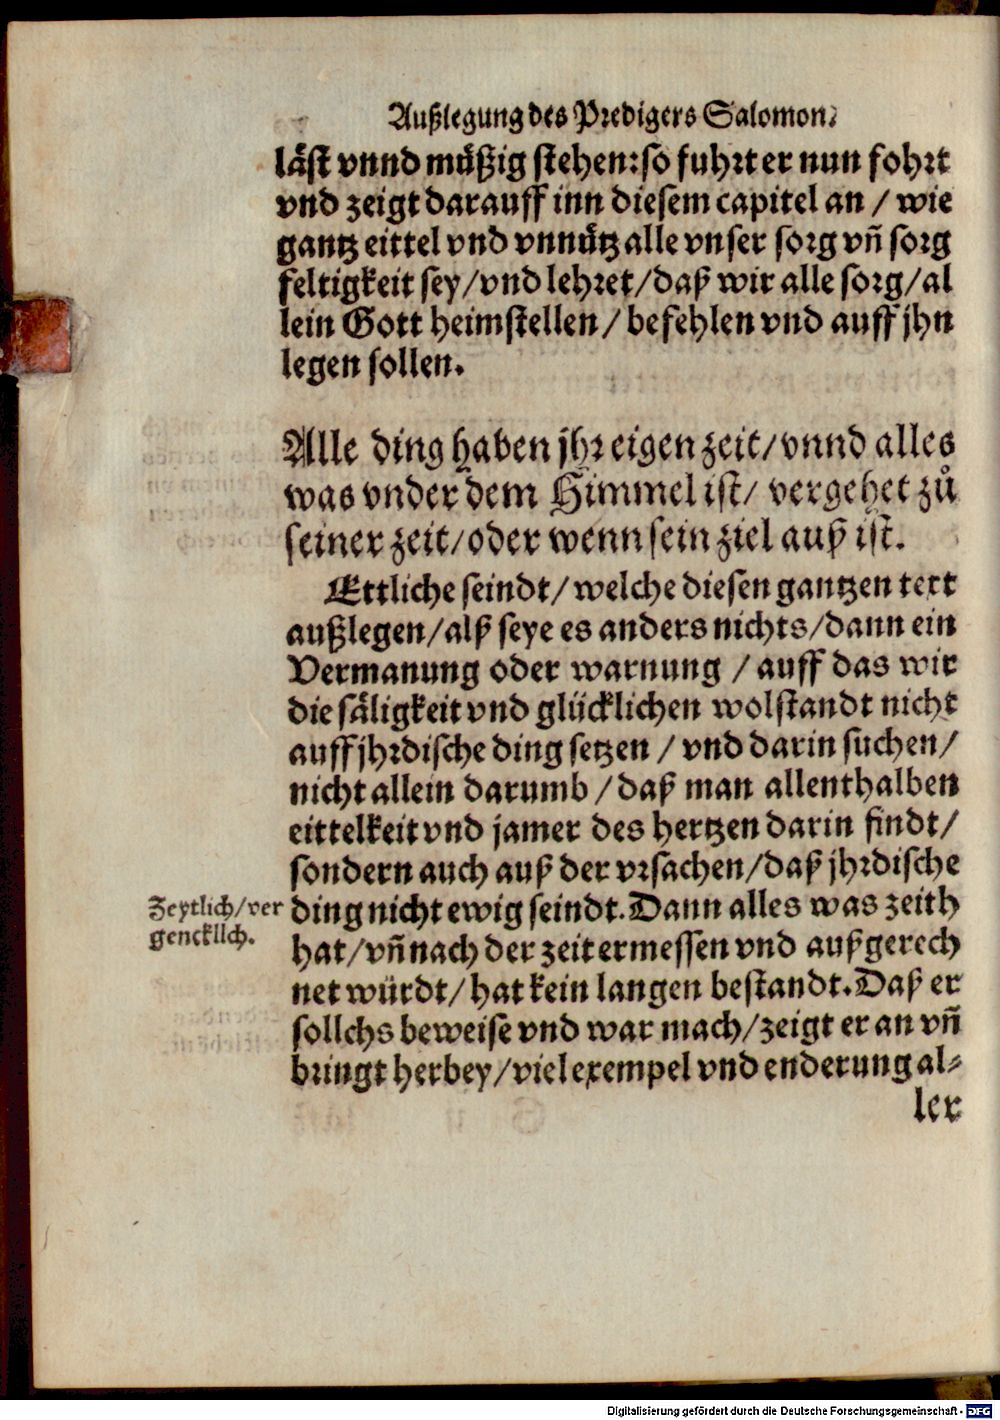 Außlegung des Predigers Salomon.
läst vnnd müßig stehen: so fuhrt er nun fohrt
vnd zeigt darauff inn diesem capitel an / wie
gantz eittel vnd vnnütz alle vnser sorg vñ sorg
feltigkeit sey / vnd lehret / daß wir alle sorg / al
lein Gott heimstellen / befehlen vnd auff jhn
legen sollen.
Alle ding haben jhr eigen zeit / vnnd alles
was vnder dem Himmel ist / vergehet zů
seiner zeit / oder wenn sein ziel auß ist.
Ettliche seindt / welche diesen gantzen text
außlegen / alß seye es anders nichts / dann ein
Vermanung oder warnung / auff das wir
die säligkeit vnd glücklichen wolstandt nicht
auff jhrdische ding setzen / vnd darin suchen /
nicht allein darumb / daß man allenthalben
eittelkeit vnd jamer des hertzen darin findt /
sondern auch auß der vrsachen / daß jhrdische
ding nicht ewig seindt. Dann alles was zeith
hat / vñ nach der zeit ermessen vnd außgerech
net würdt / hat kein langen bestandt. Daß er
sollchs beweise vnd war mach / zeigt er an vñ
bringt herbey / viel exempel vnd enderung al⸗
ler
Zeytlich / ver
gencklich.
Digitalisierung gefördert durch die Deutsche Forschungsgemeinschaft - DFG